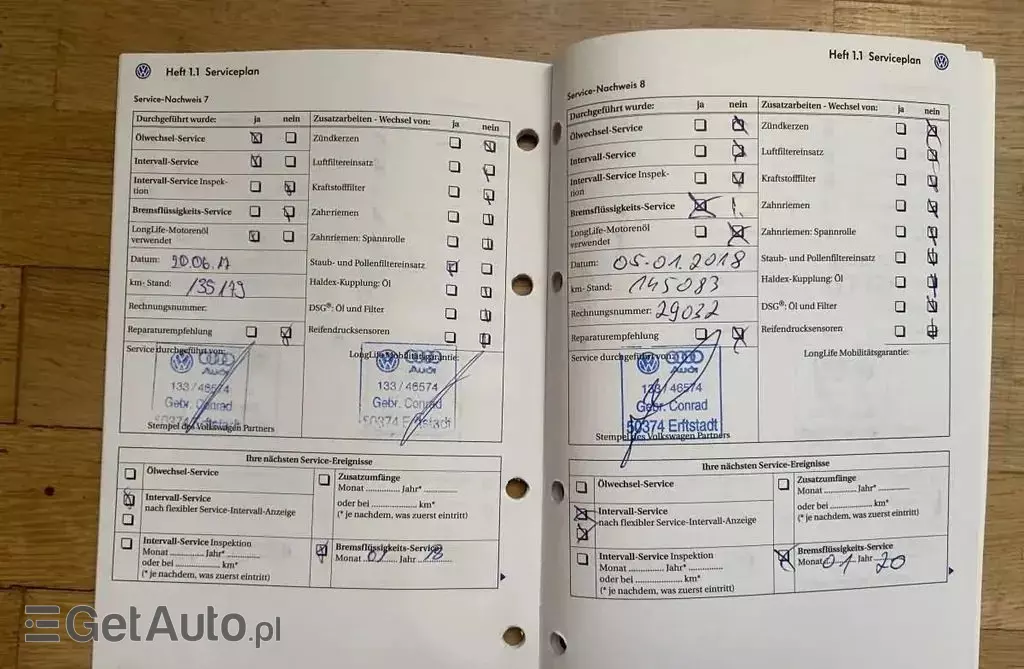 Heft 1.1 Serviceplan
Service-Nachweis 7
Durchgeführt wurde: ja nein
Ölwechsel-Service
Intervall-Service
Intervall-Service Inspek-
tion
Bremsflüssigkeits-Service
LongLife-Motorenöl
verwendet
Datum: 20.06.17
km- Stand: 135179
Rechnungsnummer:
Reparaturempfehlung
Zusatzarbeiten - Wechsel von: ja nein
Zündkerzen
Luftfiltereinsatz
Kraftstofffilter
Zahnriemen
Zahnriemen: Spannrolle
Staub- und Pollenfiltereinsatz
Haldex-Kupplung: Öl
DSG®: Öl und Filter
Reifendrucksensoren
Service durchgeführt von:
Audi
133/46574
Gebr. Conrad
50374 Erftstadt
Stempel des Volkswagen Partners
LongLife Mobilitätsgarantie:
Audi
133/46574
Gebr. Conrad
50374 Erftstadt
Ihre nächsten Service-Ereignisse
Ölwechsel-Service
Intervall-Service
nach flexibler Service-Intervall-Anzeige
Intervall-Service Inspektion
Monat ............ Jahr* ............
oder bei ............ km*
(* je nachdem, was zuerst eintritt)
Zusatzumfänge
Monat ............ Jahr* ............
oder bei ............ km*
(* je nachdem, was zuerst eintritt)
Bremsflüssigkeits-Service
Monat 01 Jahr 18
Heft 1.1 Serviceplan
Service-Nachweis 8
Durchgeführt wurde: ja nein
Ölwechsel-Service
Intervall-Service
Intervall-Service Inspek-
tion
Bremsflüssigkeits-Service !
LongLife-Motorenöl
verwendet
Datum: 05.01.2018
km- Stand: 145083
Rechnungsnummer: 29032
Reparaturempfehlung
Zusatzarbeiten - Wechsel von: ja nein
Zündkerzen
Luftfiltereinsatz
Kraftstofffilter
Zahnriemen
Zahnriemen: Spannrolle
Staub- und Pollenfiltereinsatz
Haldex-Kupplung: Öl
DSG®: Öl und Filter
Reifendrucksensoren
Service durchgeführt von:
Audi
133/46574
Gebr. Conrad
50374 Erftstadt
Stempel des Volkswagen Partners
LongLife Mobilitätsgarantie:
Ihre nächsten Service-Ereignisse
Ölwechsel-Service
Intervall-Service
nach flexibler Service-Intervall-Anzeige
Intervall-Service Inspektion
Monat ............ Jahr* ............
oder bei ............ km*
(* je nachdem, was zuerst eintritt)
Zusatzumfänge
Monat ............ Jahr* ............
oder bei ............ km*
(* je nachdem, was zuerst eintritt)
Bremsflüssigkeits-Service
Monat 01 Jahr 20
GetAuto.pl